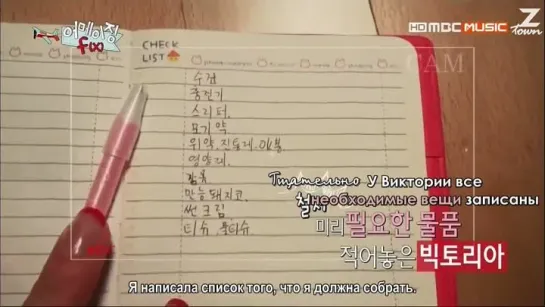 어메이징
f(x)
HD MBC MUSIC
Z town
CHECK
LIST
CAM
수건
충전기
스리퍼
모기약
위약. 진통제. 매부
영양제.
잠옷
만능돼지코.
썬크림
티슈. 물티슈.
Тщательно У Виктории все
необходимые вещи записаны
철저
미리 필요한 물품
적어놓은 빅토리아
Я написала список того, что я должна собрать.